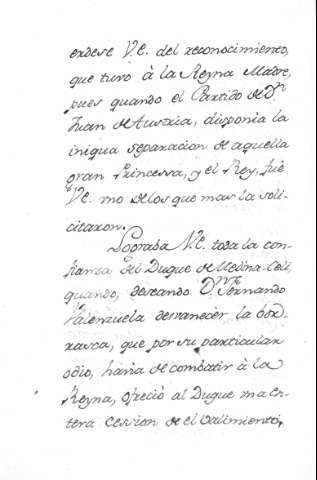 erdese V.E. del reconocimiento,
que tuvo à la Reyna Madre,
pues quando el Partido de Dn
Juan de Austria, disponia la
iniqua separacion de aquella
gran Princessa, y el Rey, fuè
V.E. uno de los que mas la soli-
citaron.
Lograba V.E. toda la con-
fianza del Duque de Medina-Celi,
quando, deseando Dn Fernando
Valenzuela desvanecer la bor-
rasca, que por su particular
odio, havia de combatir à la
Reyna, ofreciò al Duque una en-
tera cession de el valimiento,